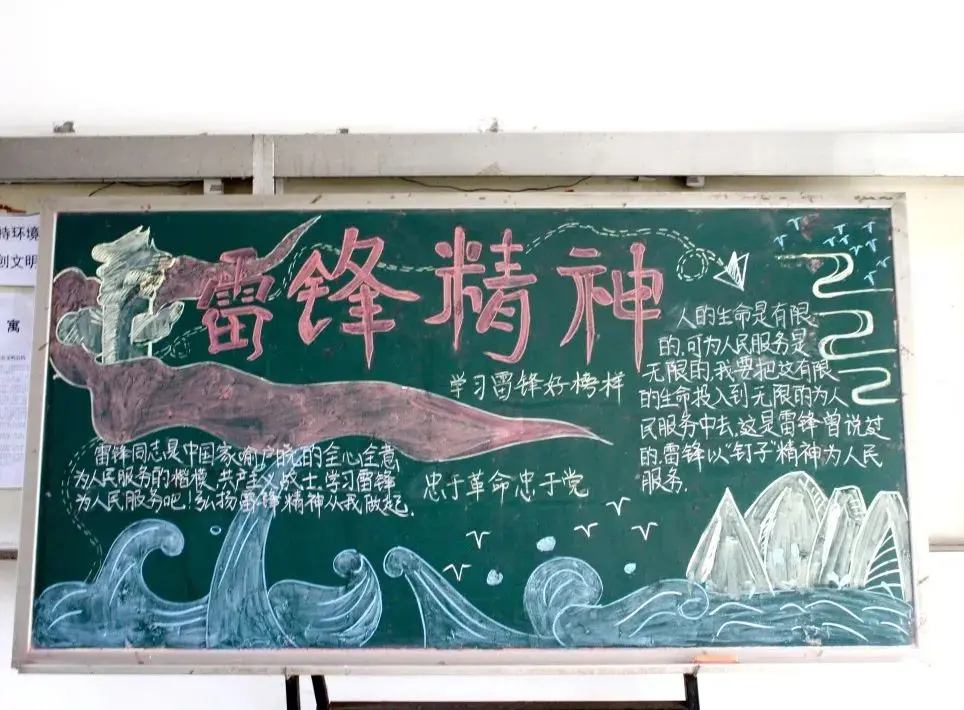 特环境
创文明
寓
雷锋精神
学习雷锋好榜样
人的生命是有限
的，可为人民服务是
无限的，我要把这有限
的生命投入到无限的为人
民服务中去，这是雷锋曾说过
的，雷锋以“钉子”精神为人民
服务。
雷锋同志是中国家喻户晓的全心全意
为人民服务的楷模、共产主义战士，学习雷锋
为人民服务吧！弘扬雷锋精神从我做起。
忠于革命忠于党